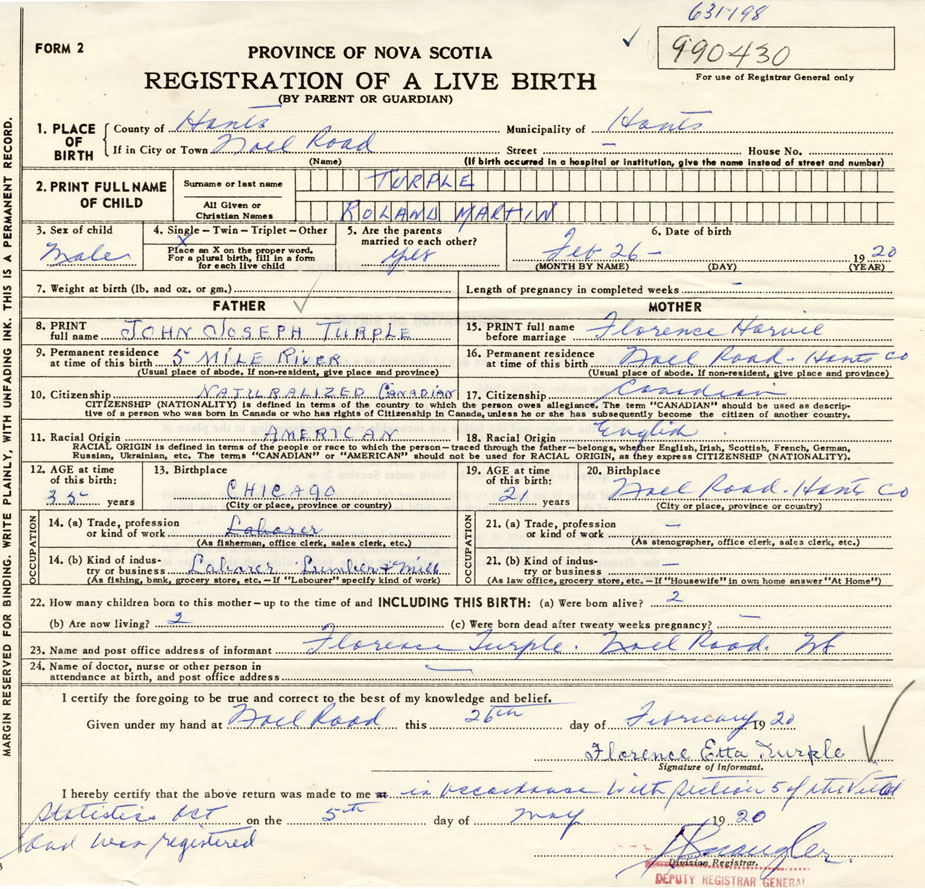 631-198
FORM 2
PROVINCE OF NOVA SCOTIA
990430
REGISTRATION OF A LIVE BIRTH
For use of Registrar General only
(BY PARENT OR GUARDIAN)
1. PLACE OF BIRTH
County of Hants Municipality of Hants
If in City or Town Noel Road Street – House No.
(Name) (If birth occurred in a hospital or institution, give the name instead of street and number)
2. PRINT FULL NAME OF CHILD
Surname or last name TURPLE
All Given or Christian Names ROLAND MARTIN
3. Sex of child Male
4. Single – Twin – Triplet – Other
X
Place an X on the proper word.
For a plural birth, fill in a form
for each live child
5. Are the parents
married to each other? yes
6. Date of birth
Feb 26 – 1920
(MONTH BY NAME) (DAY) (YEAR)
7. Weight at birth (lb. and oz. or gm.) Length of pregnancy in completed weeks –
FATHER MOTHER
8. PRINT full name JOHN JOSEPH TURPLE
15. PRINT full name before marriage Florence Harvie
9. Permanent residence at time of this birth 5 MILE RIVER
(Usual place of abode. If non-resident, give place and province)
16. Permanent residence at time of this birth Noel Road. Hants Co
(Usual place of abode. If non-resident, give place and province)
10. Citizenship NATURALIZED CANADIAN 17. Citizenship Canadian
CITIZENSHIP (NATIONALITY) is defined in terms of the country to which the person owes allegiance. The term "CANADIAN" should be used as descrip-
tive of a person who was born in Canada or who has rights of Citizenship in Canada, unless he or she has subsequently become the citizen of another country.
11. Racial Origin AMERICAN 18. Racial Origin English
RACIAL ORIGIN is defined in terms of the people or race to which the person – traced through the father – belongs, whether English, Irish, Scottish, French, German,
Russian, Ukrainian, etc. The terms "CANADIAN" or "AMERICAN" should not be used for RACIAL ORIGIN, as they express CITIZENSHIP (NATIONALITY).
12. AGE at time of this birth: 35 years
13. Birthplace CHICAGO
(City or place, province or country)
19. AGE at time of this birth: 21 years
20. Birthplace Noel Road. Hants Co
(City or place, province or country)
OCCUPATION
14. (a) Trade, profession or kind of work Laborer
(As fisherman, office clerk, sales clerk, etc.)
14. (b) Kind of indus-
try or business Laborer Lumber & Mill
(As fishing, bank, grocery store, etc. – If "Labourer" specify kind of work)
OCCUPATION
21. (a) Trade, profession or kind of work –
(As stenographer, office clerk, sales clerk, etc.)
21. (b) Kind of indus-
try or business –
(As law office, grocery store, etc. – If "Housewife" in own home answer "At Home")
22. How many children born to this mother – up to the time of and INCLUDING THIS BIRTH: (a) Were born alive? 2
(b) Are now living? 2 (c) Were born dead after twenty weeks pregnancy? –
23. Name and post office address of informant Florence Turple. Noel Road.
24. Name of doctor, nurse or other person in
attendance at birth, and post office address –
I certify the foregoing to be true and correct to the best of my knowledge and belief.
Given under my hand at Noel Road this 26th day of February 1920
Florence Etta Turple
Signature of Informant.
I hereby certify that the above return was made to me at in accordance with section 5 of the Vital
Statistics Act on the 5th day of May 1920
and was registered
Division Registrar.
DEPUTY REGISTRAR GENERAL
MARGIN RESERVED FOR BINDING. WRITE PLAINLY, WITH UNFADING INK. THIS IS A PERMANENT RECORD.